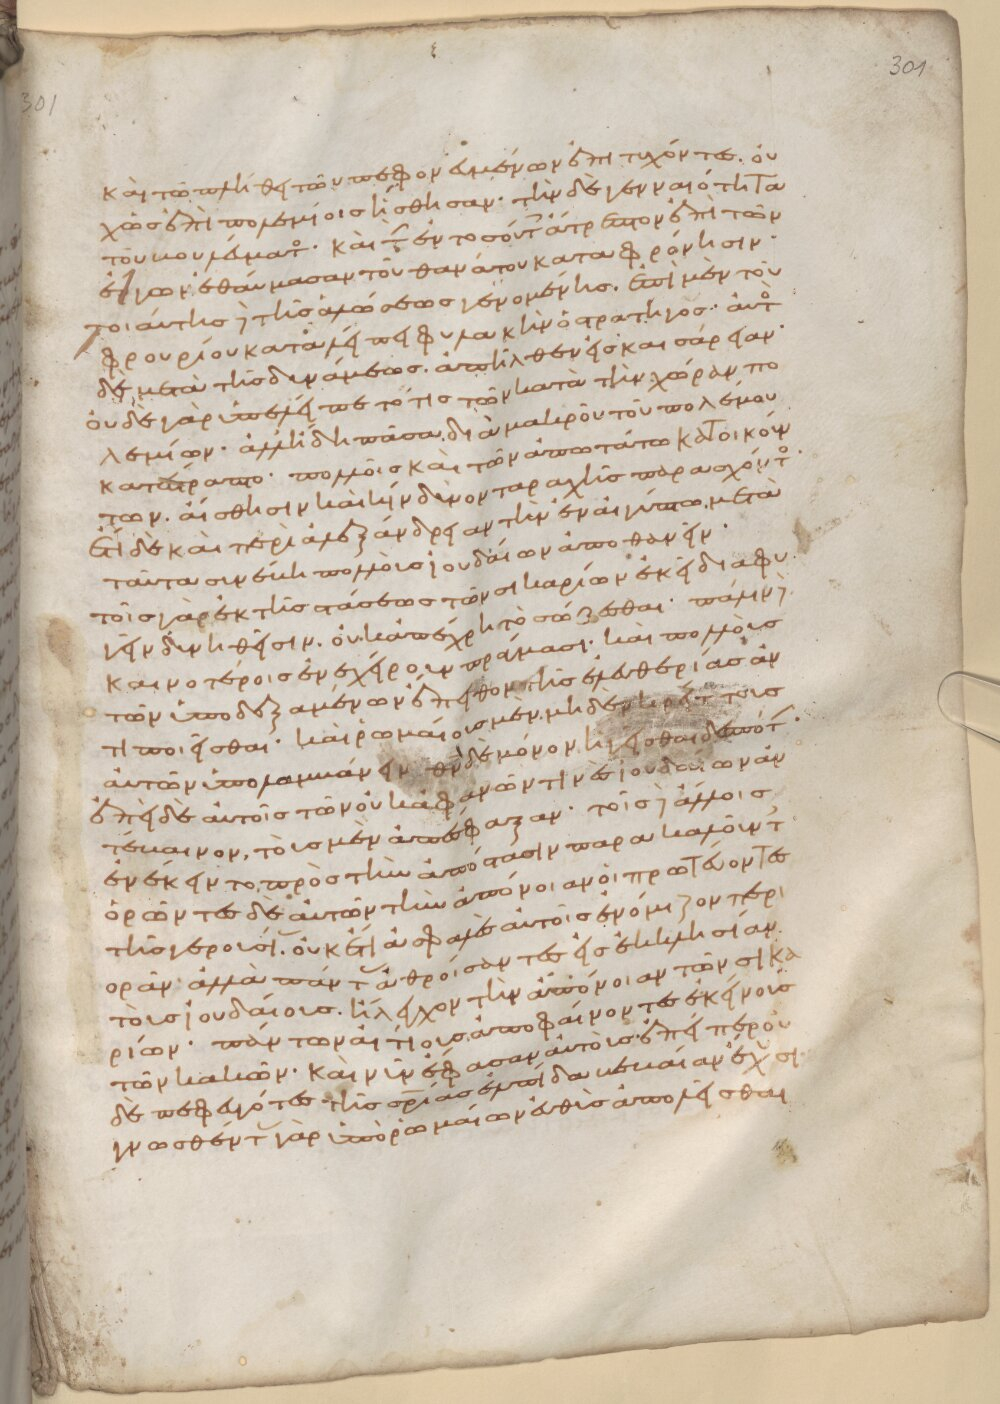 καὶ τῶ πλήθει τῶν πεφονευμένων ἐπιτυχόντες. οὐ
χ᾽ ὡς ἐπὶ πολεμίοις ἥσθησαν· τὴν δὲ γενναιότητα
τοῦ βουλεύματο· καὶ τὸν ἐν τοσούτ ἄτρεπτον ἐπὶ τῶν
ἔργων ἐθαύμασαν τοῦ θανάτου καταφρόνησιν·
τοιαύτης δὲ τῆς ἁλώσεως γενομένης. ἐπὶ μὲν τοῦ
φρουρίου καταλείπει φυλακὴν ὁ στρατηγός· αὐτὸ
δὲ, μετὰ τῆς δυνάμεως. ἀπῆλθεν εἰς καισάρειαν·
οὐδὲ γὰρ ὑπελείπετό τις τῶν κατὰ τὴν χώραν πο
λεμίων· ἀλλ᾽ ἤδη πᾶσα, διὰ μακροῦ τοῦ πολέμου
κατέστραπτο· πολλοῖς καὶ τῶν ἀπωτάτω κατοικούν
των. αἴσθησιν καὶ κίνδυνον ταραχῆς παρασχόντο·
ἔτι δὲ καὶ περὶ ἀλεξάνδρειαν τὴν ἐν αἰγύπτω, μετὰ
ταῦτα συνέβη πολλοὺς ἰουδαίων ἀποθανεῖν·
τοῖς γὰρ ἐκ τῆς στάσεως τῶν σικαρίων ἐκεῖ διαφυ
γεῖν δυνηθεῖσιν. οὐκ ἀπέχρη τὸ σώζεσθαι· πάλιν δὲ
καινοτέροις ἐνεχείρουν πράγμασι· καὶ πολλοὺς
τῶν ὑποδεξαμένων ἔπειθον τῆς ἐλευθερίας ἀν
τιποιεῖσθαι· καὶ ῥωμαίους μὲν μηδὲν κρείττους
αὐτῶν ὑπολαμβάνειν θν δὲ μόνον ἡγεῖσθαι δεσπότ·
ἐπεὶ δὲ αὐτοῖς τῶν οὐκ ἀφανῶν τινὲς ἰουδαίων ἀν
τέβαινον, τοὺς μὲν ἀπέσφαξαν· τοῖς δ᾽ ἄλλοις
ἐνέκειντο, πρὸς τὴν ἀπόστασιν παρακαλοῦντ
ὁρῶντες δὲ αὐτῶν τὴν ἀπόνοιαν οἱ πρωτεύοντες
τῆς γερουσί. οὐκέτι ἀσφαλὲς αὐτοῖς ἐνόμιζον περι
ορᾶν· ἀλλὰ πάντ ἀθροίσαντες εἰς ἐκκλησίαν
τοὺς ἰουδαίους. ἤλεγχον τὴν ἀπόνοιαν τῶν σικα
ρίων· πάντων αἰτίους ἀποφαίνοντες ἐκείνους
τῶν κακῶν· καὶ νῦν ἔφασαν αὐτοὺς· ἐπείπερ οὐ
δὲ πεφευγότες τῆς σρίας ἐλπίδα βεβαίαν ἔχουσι·
γνωσθέντ γὰρ ὑπὸ ῥωμαίων εὐθὺς ἀπολεῖσθαι
301
301